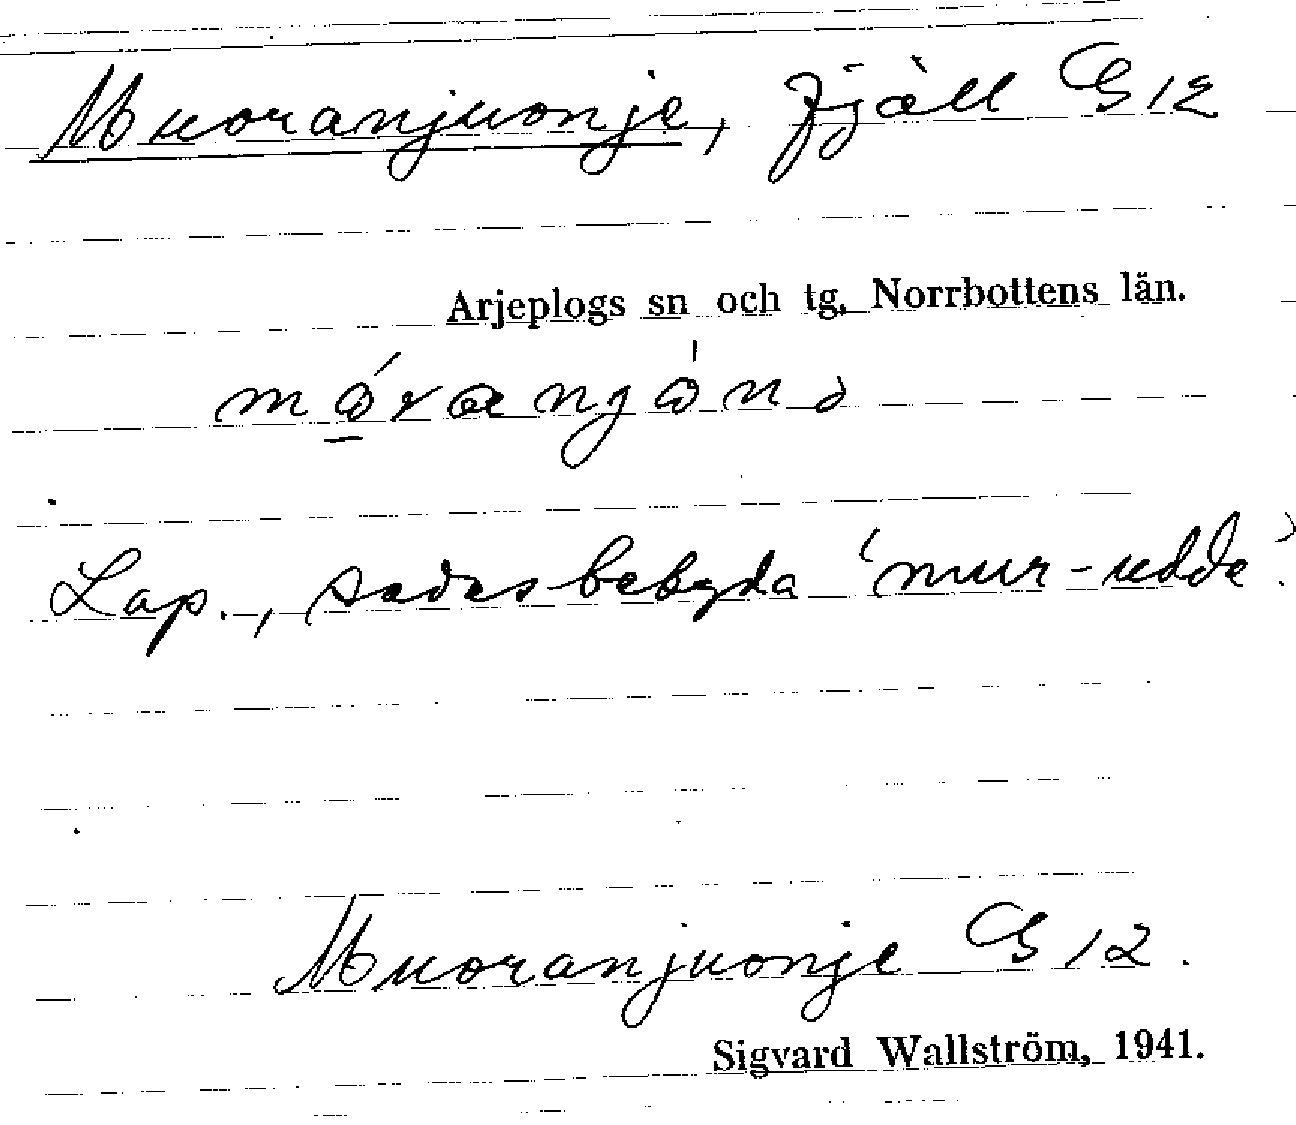 Muoranjuonje, fjäll G 12
Arjeplogs sn och tg, Norrbottens län.
Lap., sades bebyda 'mur-udde'.
Muoranjuonje G 12.
Sigvard Wallström, 1941.